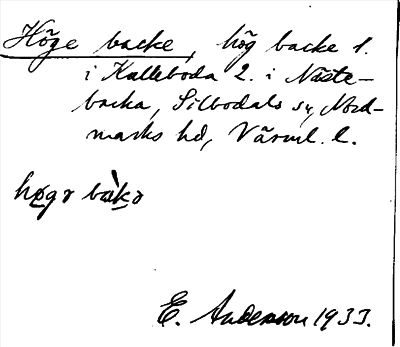 Höge backe, hög backe 1.
i Kalleboda 2. i Näste-
backa, Silbodals sn, Nord-
marks hd, Värml. l.
høgə bàkə
E. Anderson 1933.